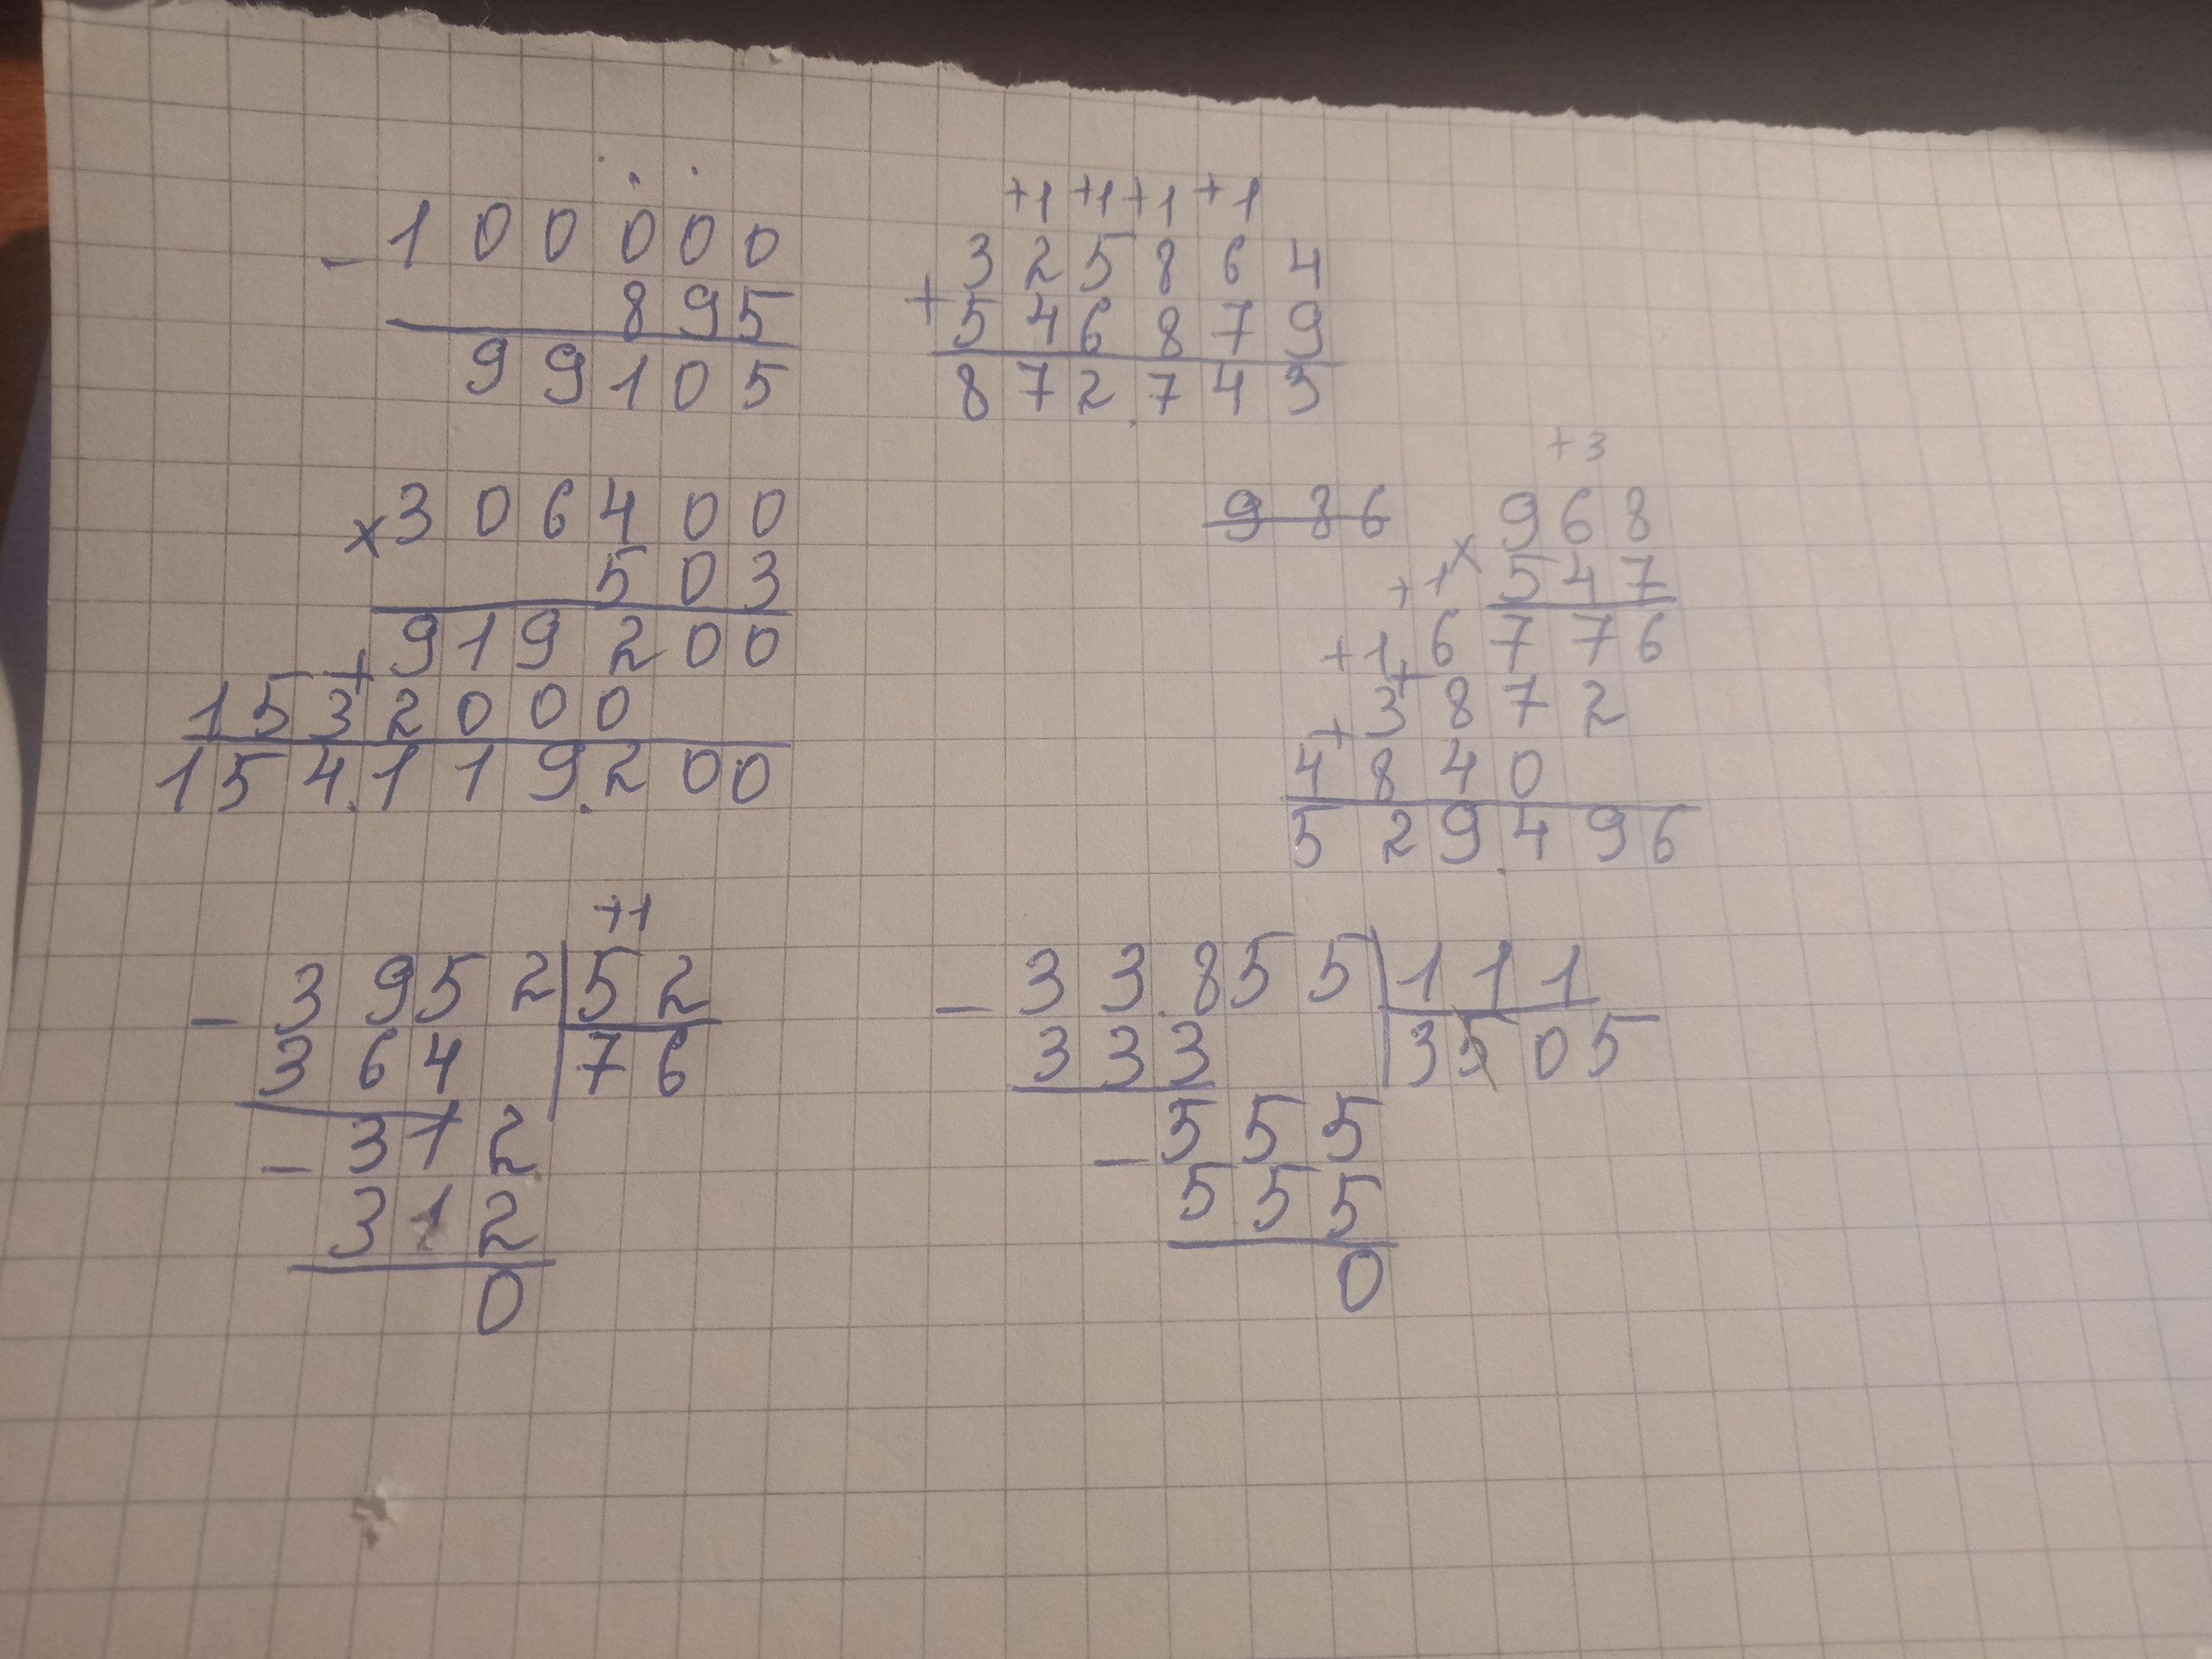 - 1 0 0 0 0 0
8 9 5
9 9 1 0 5
+1 +1 +1 +1
3 2 5 8 6 4
+ 5 4 6 8 7 9
8 7 2.7 4 3
x 3 0 6 4 0 0
5 0 3
9 1 9 2 0 0
+
1 5 3 2 0 0 0
1 5 4.1 1 9.2 0 0
9 8 6
+3
9 6 8
x 5 4 7
+1
+1 6 7 7 6
+ 3 8 7 2
+ 4 8 4 0
5 2 9.4 9 6
+1
- 3 9 5 2 | 5 2
3 6 4 | 7 6
- 3 1 2
3 1 2
0
- 3 3.8 5 5 | 1 1 1
3 3 3 | 3 5 0 5
- 5 5 5
5 5 5
0